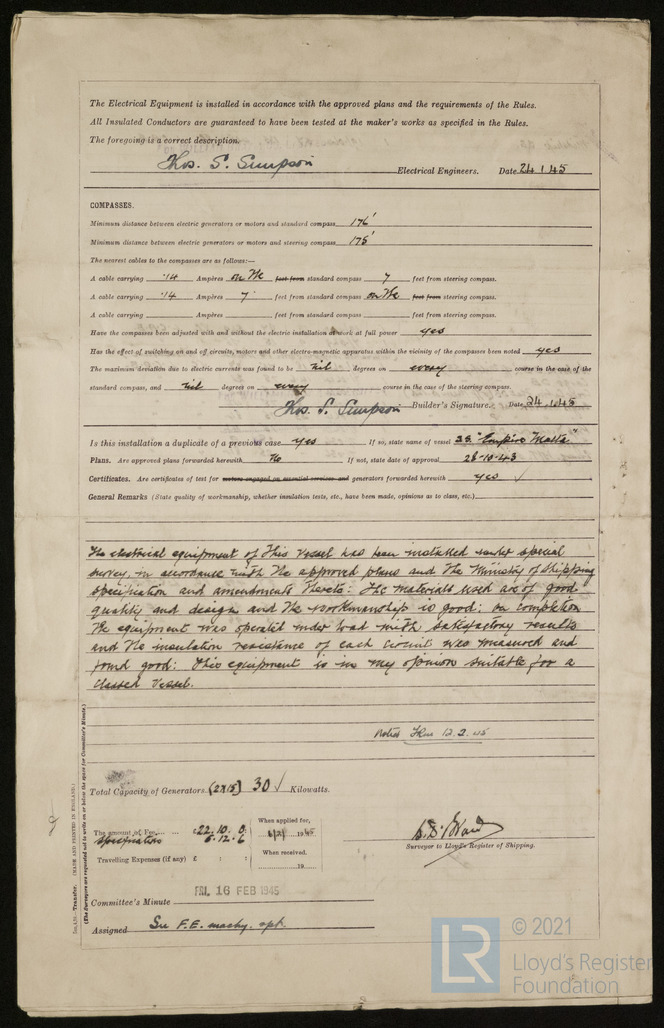 The Electrical Equipment is installed in accordance with the approved plans and the requirements of the Rules.
All Insulated Conductors are guaranteed to have been tested at the maker's works as specified in the Rules.
The foregoing is a correct description.
Thos. S. Simpson Electrical Engineers. Date 24.1.45
COMPASSES.
Minimum distance between electric generators or motors and standard compass 176'
Minimum distance between electric generators or motors and steering compass 175'
The nearest cables to the compasses are as follows:—
A cable carrying .14 Ampères on the feet from standard compass 7 feet from steering compass.
A cable carrying .14 Ampères 7 feet from standard compass on the feet from steering compass.
A cable carrying Ampères feet from standard compass feet from steering compass.
Have the compasses been adjusted with and without the electric installation at work at full power yes
Has the effect of switching on and off circuits, motors and other electro-magnetic apparatus within the vicinity of the compasses been noted yes
The maximum deviation due to electric currents was found to be nil degrees on every course in the case of the
standard compass, and nil degrees on every course in the case of the steering compass.
Thos. S. Simpson Builder's Signature. Date 24.1.45
Is this installation a duplicate of a previous case yes If so, state name of vessel S.S. "Empire Malta"
Plans. Are approved plans forwarded herewith No If not, state date of approval 28-10-43
Certificates. Are certificates of test for motors engaged on essential services and generators forwarded herewith yes ✓
General Remarks (State quality of workmanship, whether insulation tests, etc., have been made, opinions as to class, etc.)
The electrical equipment of this vessel has been installed under special
survey, in accordance with the approved plans and the Ministry of Shipping
specification and amendments thereto: The materials used are of good
quality and design and the workmanship is good: on completion
the equipment was operated under load with satisfactory results
and the insulation resistance of each circuit was measured and
found good: This equipment is in my opinion suitable for a
classed vessel.
Noted 12.2.45
Total Capacity of Generators (2x15) 30 ✓ Kilowatts.
The amount of Fee £22.10.0 When applied for, 19 45
Specification 5.12.6
Travelling Expenses (if any) £ : : When received, 19
Surveyor to Lloyd's Register of Shipping.
FRI. 16 FEB 1945
Committee's Minute
Assigned See F.E. machy. rpt.
Transfer. (MADE AND PRINTED IN ENGLAND.)
(The Surveyors are requested not to write on or below the space for Committee's Minute.)
LR
© 2021
Lloyd's Register
Foundation